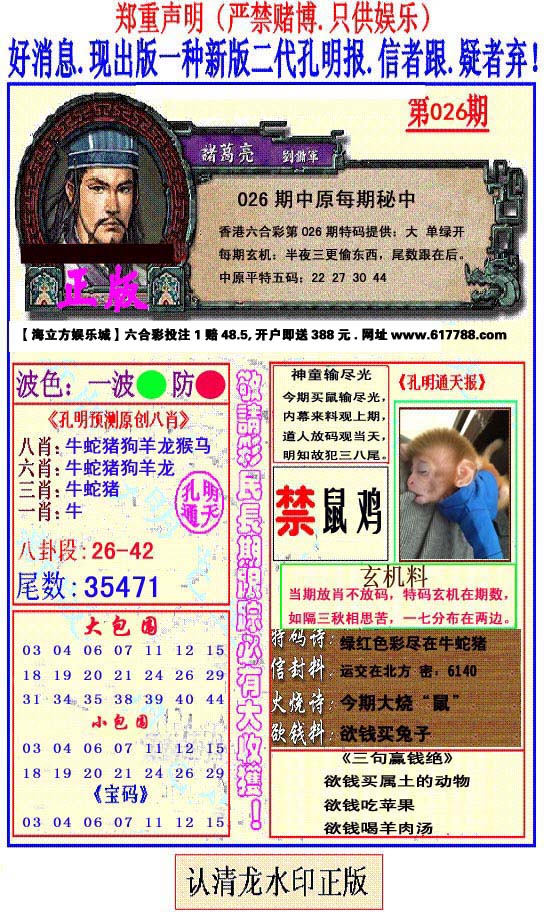 郑重声明（严禁赌博.只供娱乐）
好消息.现出版一种新版二代孔明报.信者跟.疑者弃!
第026期
諸葛亮 劉備軍
026 期中原每期秘中
香港六合彩第 026 期特码提供：大 单绿开
每期玄机：半夜三更偷东西，尾数跟在后。
中原平特五码：22 27 30 44
正版
【海立方娱乐城】六合彩投注 1 赔 48.5, 开户即送 388 元 . 网址 www.617788.com
波色：一波 防
《孔明预测原创八肖》
八肖：牛蛇猪狗羊龙猴马
六肖：牛蛇猪狗羊龙
三肖：牛蛇猪
一肖：牛
孔明
通天
八卦段：26-42
尾数：35471
大包围
03 04 06 07 11 12 15
18 19 20 21 24 26 29
31 34 35 38 39 40 44
小包围
03 04 06 07 11 12 15
18 19 20 21 24 26 29
《宝码》
03 04 06 07 11 12 15
敬請彩民長期跟踪必有大收獲！
神童输尽光
今期买鼠输尽光，
内幕来料观上期，
道人放码观当天，
明知故犯三八尾。
《孔明通天报》
禁 鼠 鸡
玄机料
当期放肖不放码，特码玄机在期数，
如隔三秋相思苦，一七分布在两边。
特码诗：绿红色彩尽在牛蛇猪
信封料：运交在北方 密：6140
火烧诗：今期大烧“鼠”
欲钱料：欲钱买兔子
《三句赢钱绝》
欲钱买属土的动物
欲钱吃苹果
欲钱喝羊肉汤
认清龙水印正版